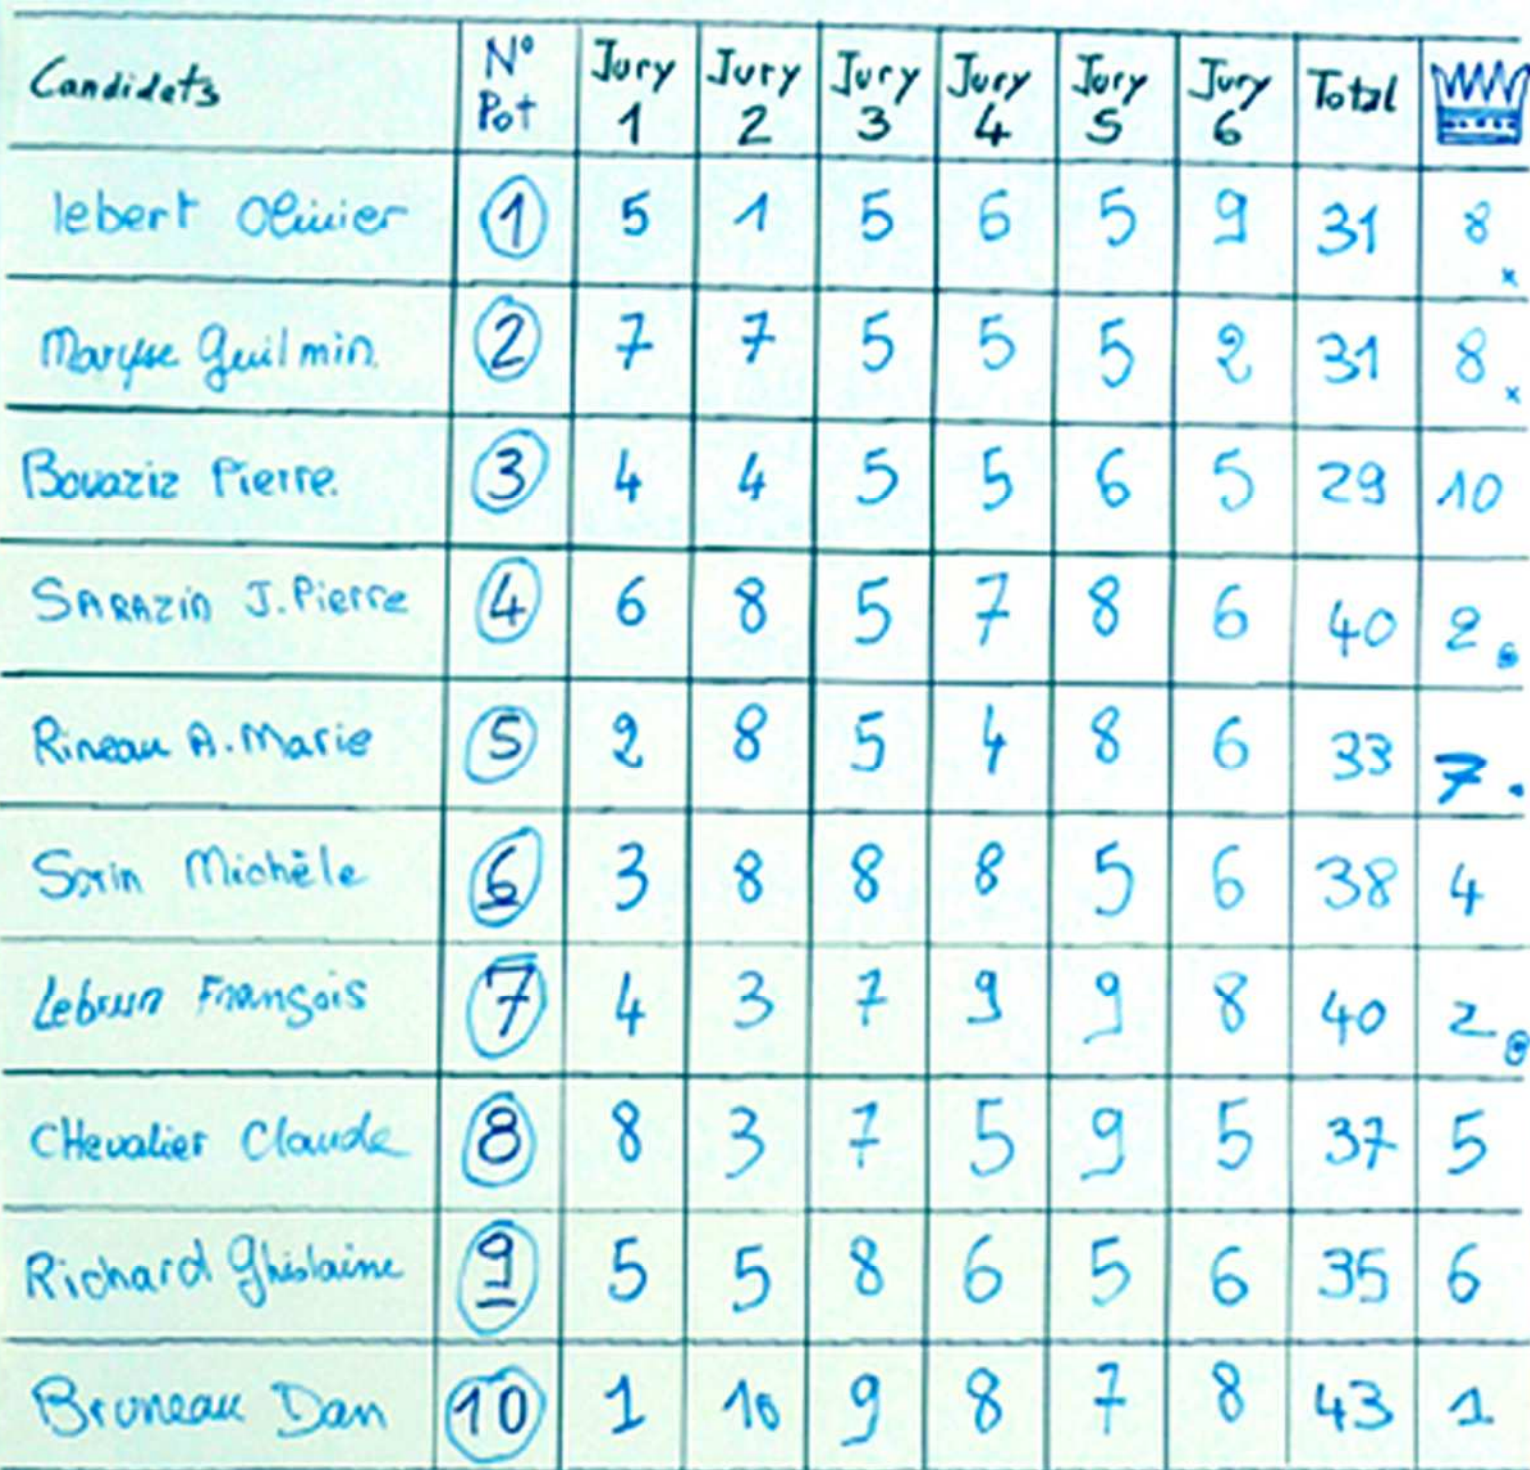 Candidats N° Pot Jury 1 Jury 2 Jury 3 Jury 4 Jury 5 Jury 6 Total
lebert Olivier 1 5 1 5 6 5 9 31 8 x
Maryse Guilmin. 2 7 7 5 5 5 2 31 8 x
Bouaziz Pierre. 3 4 4 5 5 6 5 29 10
SARAZIN J.Pierre 4 6 8 5 7 8 6 40 2
Rineau A.Marie 5 2 8 5 4 8 6 33 7.
Sorin Michèle 6 3 8 8 8 5 6 38 4
Lebrun François 7 4 3 7 9 9 8 40 2
CHevalier Claude 8 8 3 7 5 9 5 37 5
Richard Ghislaine 9 5 5 8 6 5 6 35 6
Bruneau Dan 10 1 10 9 8 7 8 43 1